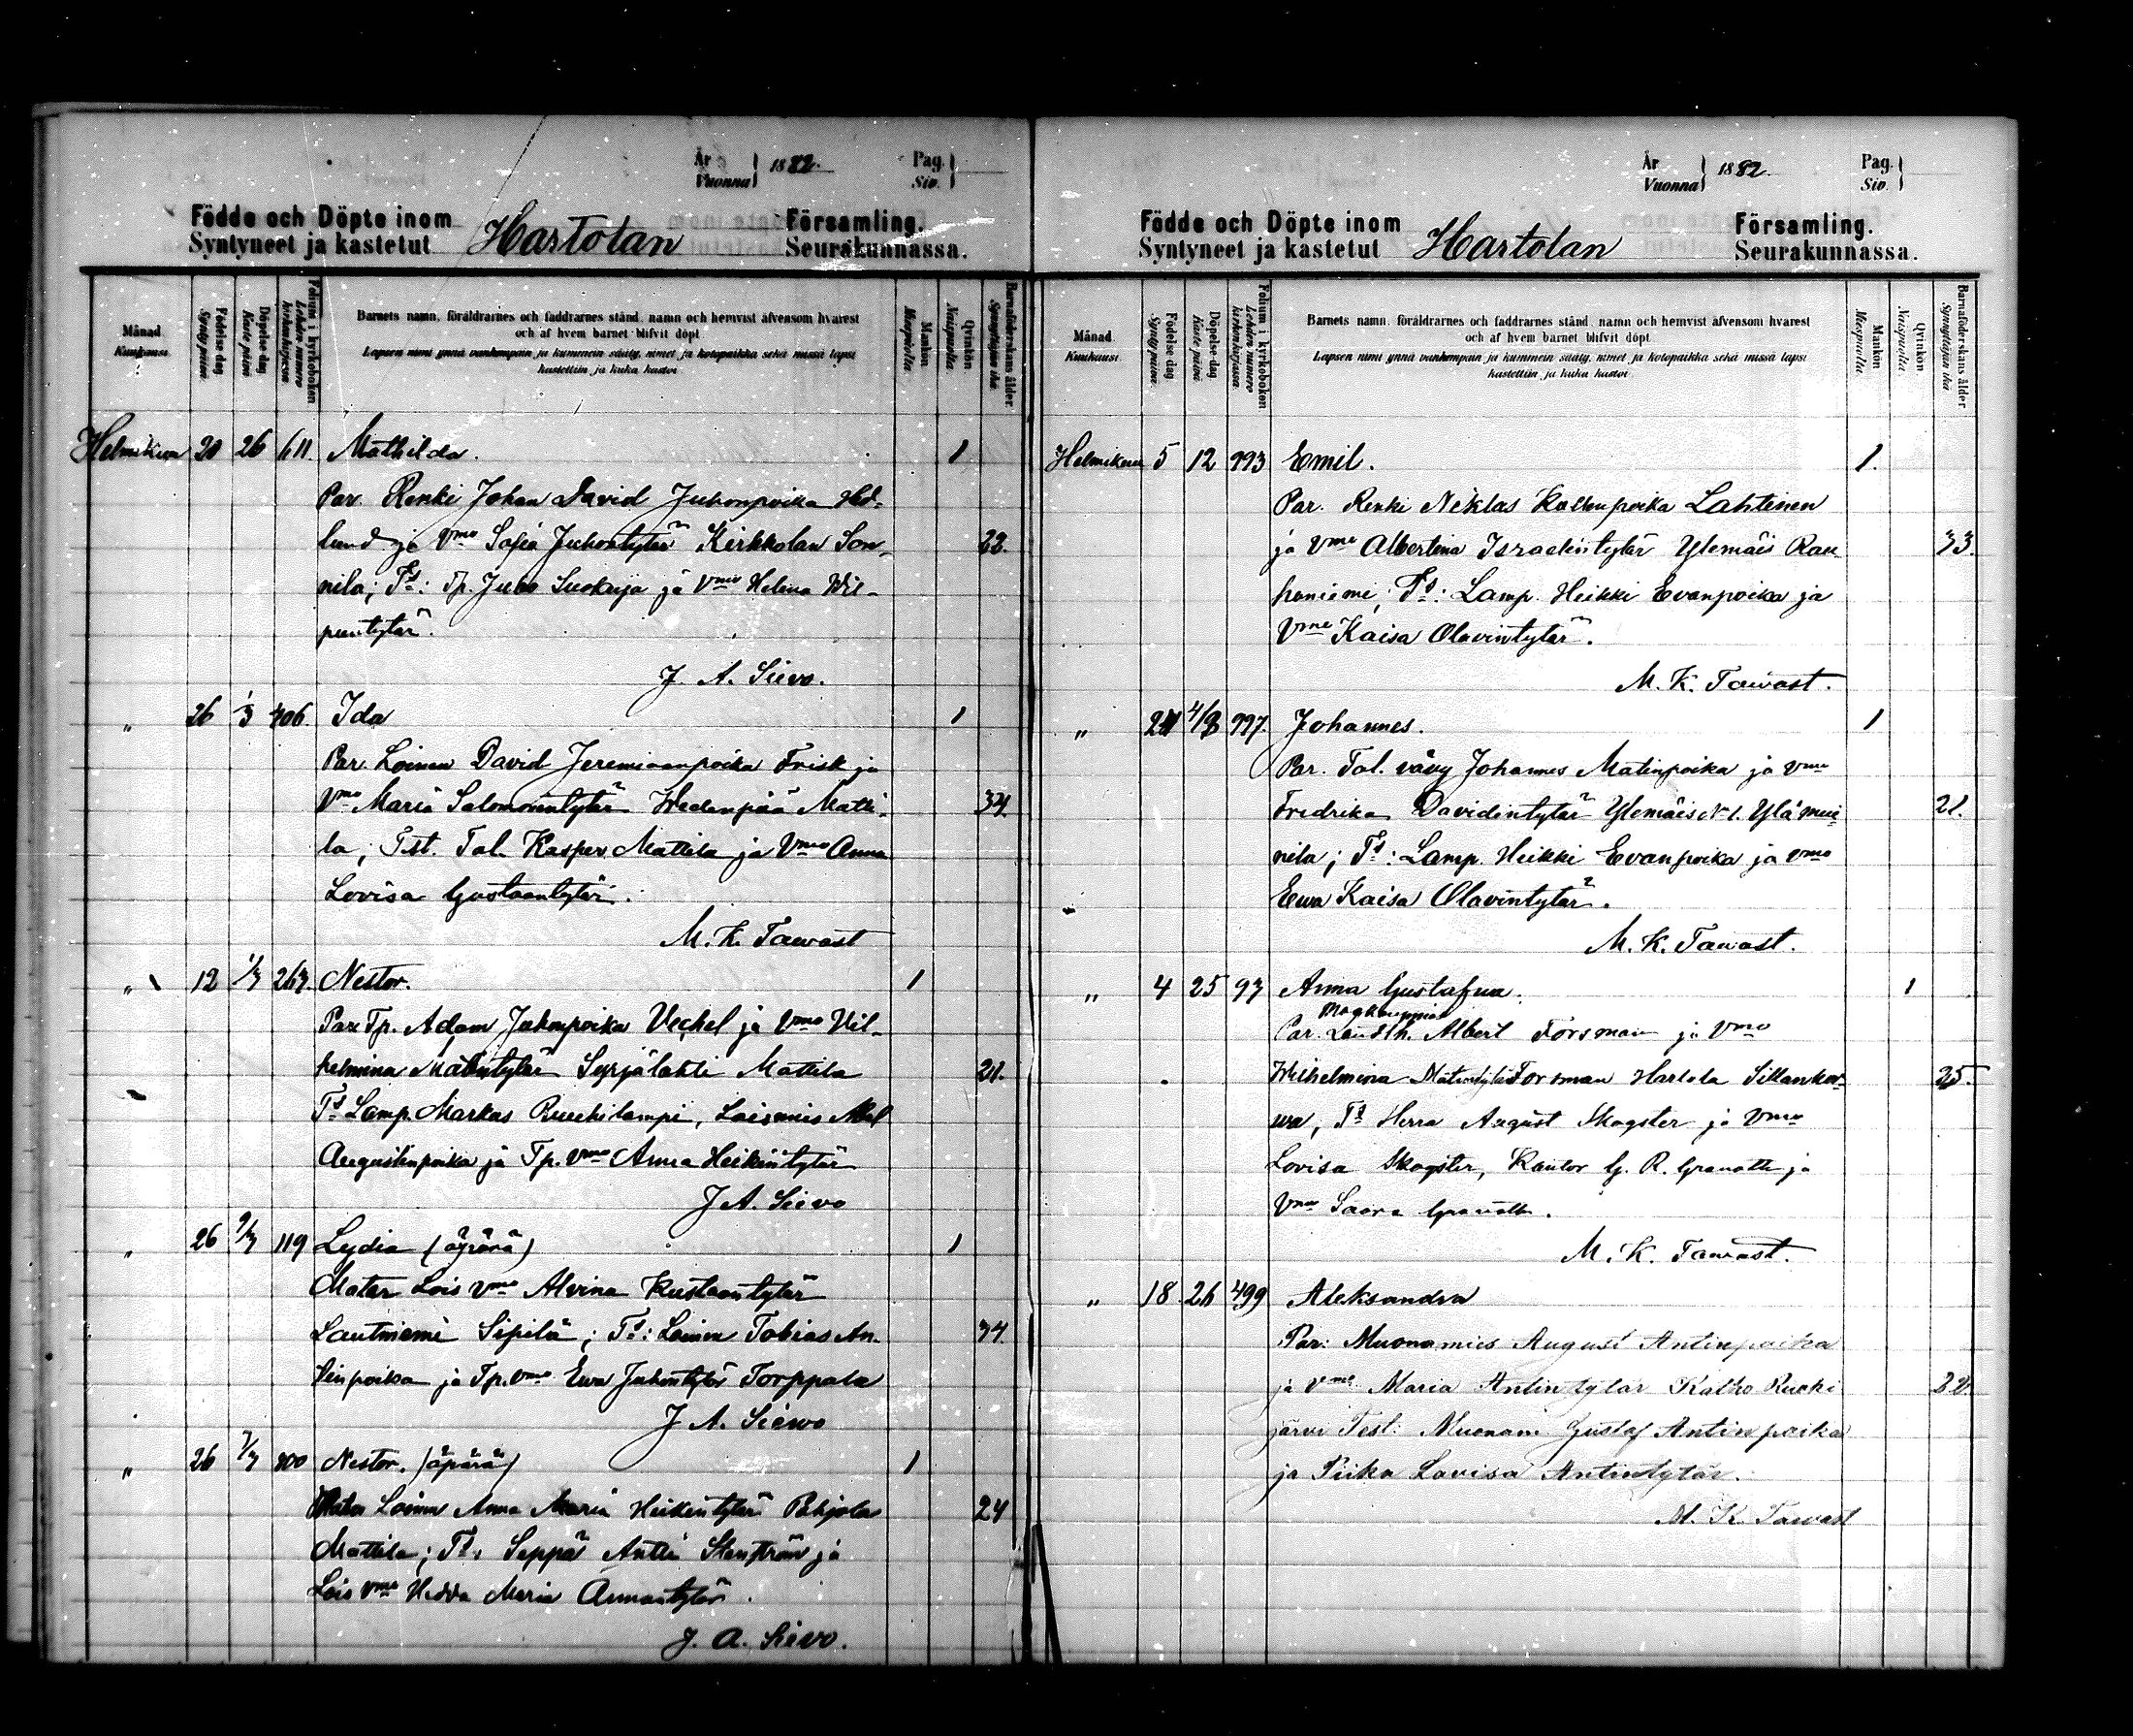 År
Vuonna 1882. Pag.
Siv.
Födde och Döpte inom Hartolan Församling.
Syntyneet ja kastetut Seurakunnassa.
Månad.
Kuukausi.
Födelse dag
Synty päivä
Döpelse dag
Kaste päivä
Folium i kyrkoboken
Lehden numero
kirkonkirjassa
Barnets namn, föräldrarnes och faddrarnes stånd, namn och hemvist äfvensom hvarest
och af hvem barnet blifvit döpt.
Lapsen nimi ynnä vanhempain ja kummein sääty, nimet ja kotopaikka sekä missä lapsi
kastettiin ja kuka kastoi
Mankön
Miespuolia.
Qvinkön
Naispuolia.
Barnaföderskans ålder
Synnyttäjän ikä
Helmikuu 20 26 611. Mathilda. 1
Par. Renki Johan David Juhonpoika Hed-
lund ja Vmo Sofia Juhontytär Kirkkolan Son- 22.
nila; Td: Tp. Juho Suokuja ja Vmo Helena Wil-
puntytär.
J. A. Sievo.
" 26 1/3 406. Ida 1
Par. Loinen David Jeremiaanpoika Frisk ja
Vmo Maria Salomonintytär Hedenpää Matti- 34.
la; Tst. Tal. Kasper Mattila ja Vmo Anna
Lovisa Gustaantytär.
M. K. Tawast
" 12 1/3 267. Nestor. 1
Par. Tp. Adam Juhonpoika Vechel ja Vmo Vil-
helmina Matintytär Syrjälahti Mattila 21.
Td Lamp. Markus Ruuhilampi, Loismies Abel
Augustinpoika ja Tp. vmo Anna Heikintytär
J A. Sievo
" 26 9/3 119 Lydia (äpärä) 1
Mater Lois vmo Alvina Kustaantytär
Lautniemi Sipilä; Td: Loinen Tobias An- 34.
tinpoika ja Tp. vmo Ewa Juhontytär Torppala
J A. Sievo
" 26 7/3 800 Nestor. (äpärä) 1
Mater Loinen Anna Maria Heikintytär Pohjola 24
Mattila; Td: Seppä Antti Stenström ja
Lois vmo Hedda Maria Annantytär.
J. A. Sievo.
År
Vuonna 1882. Pag.
Siv.
Födde och Döpte inom Hartolan Församling.
Syntyneet ja kastetut Seurakunnassa.
Månad
Kuukausi.
Födelse dag
Synty päivä
Döpelse dag
Kaste päivä
Folium i kyrkoboken
Lehden numero
kirkonkirjassa
Barnets namn, föräldrarnes och faddrarnes stånd, namn och hemvist äfvensom hvarest
och af hvem barnet blifvit döpt.
Lapsen nimi ynnä vanhempain ja kummein sääty, nimet ja kotopaikka sekä missä lapsi
kastettiin ja kuka kastoi.
Mankön
Miespuolia.
Qvinkön
Naispuolia.
Barnaföderskans ålder
Synnyttäjän ikä
Helmikuu 5 12 993 Emil. 1.
Par. Renki Niklas Kallenpoika Lahtinen
ja Vmo Albertina Israelintytär Ylemäis Rau- 33
haniemi; Td: Lamp. Heikki Evanpoika ja
Vmo Kaisa Olavintytär.
M. K. Tawast.
" 24 4/3 997. Johannes. 1
Par. Tal. vävy Johannes Matinpoika ja vmo
Fredrika Davidintytär Ylemäis No 1. Ylä mui- 21.
nila; Td: Lamp. Heikki Evanpoika ja vmo
Ewa Kaisa Olavintytär.
M. K. Tawast.
" 4 25 97 Anna Gustafva. 1
Par. Landth. Albert Forsman ja Vmo
Wilhelmina Matintytär Forsman Hartola Sillankor- 25.
wa, Td Herra August Skogster ja Vmo
Lovisa Skogster, Kantor G. R. Granatt ja
Vmo Saara Granatt.
M. K. Tawast.
" 18 26 499 Aleksandra
Par: Muonamies August Antinpoika
ja Vmo Maria Antintytär Kalho Ruoki
järvi Test: Muonam Gustaf Antinpoika
ja Piika Lovisa Antintytär.
M. K. Tawast